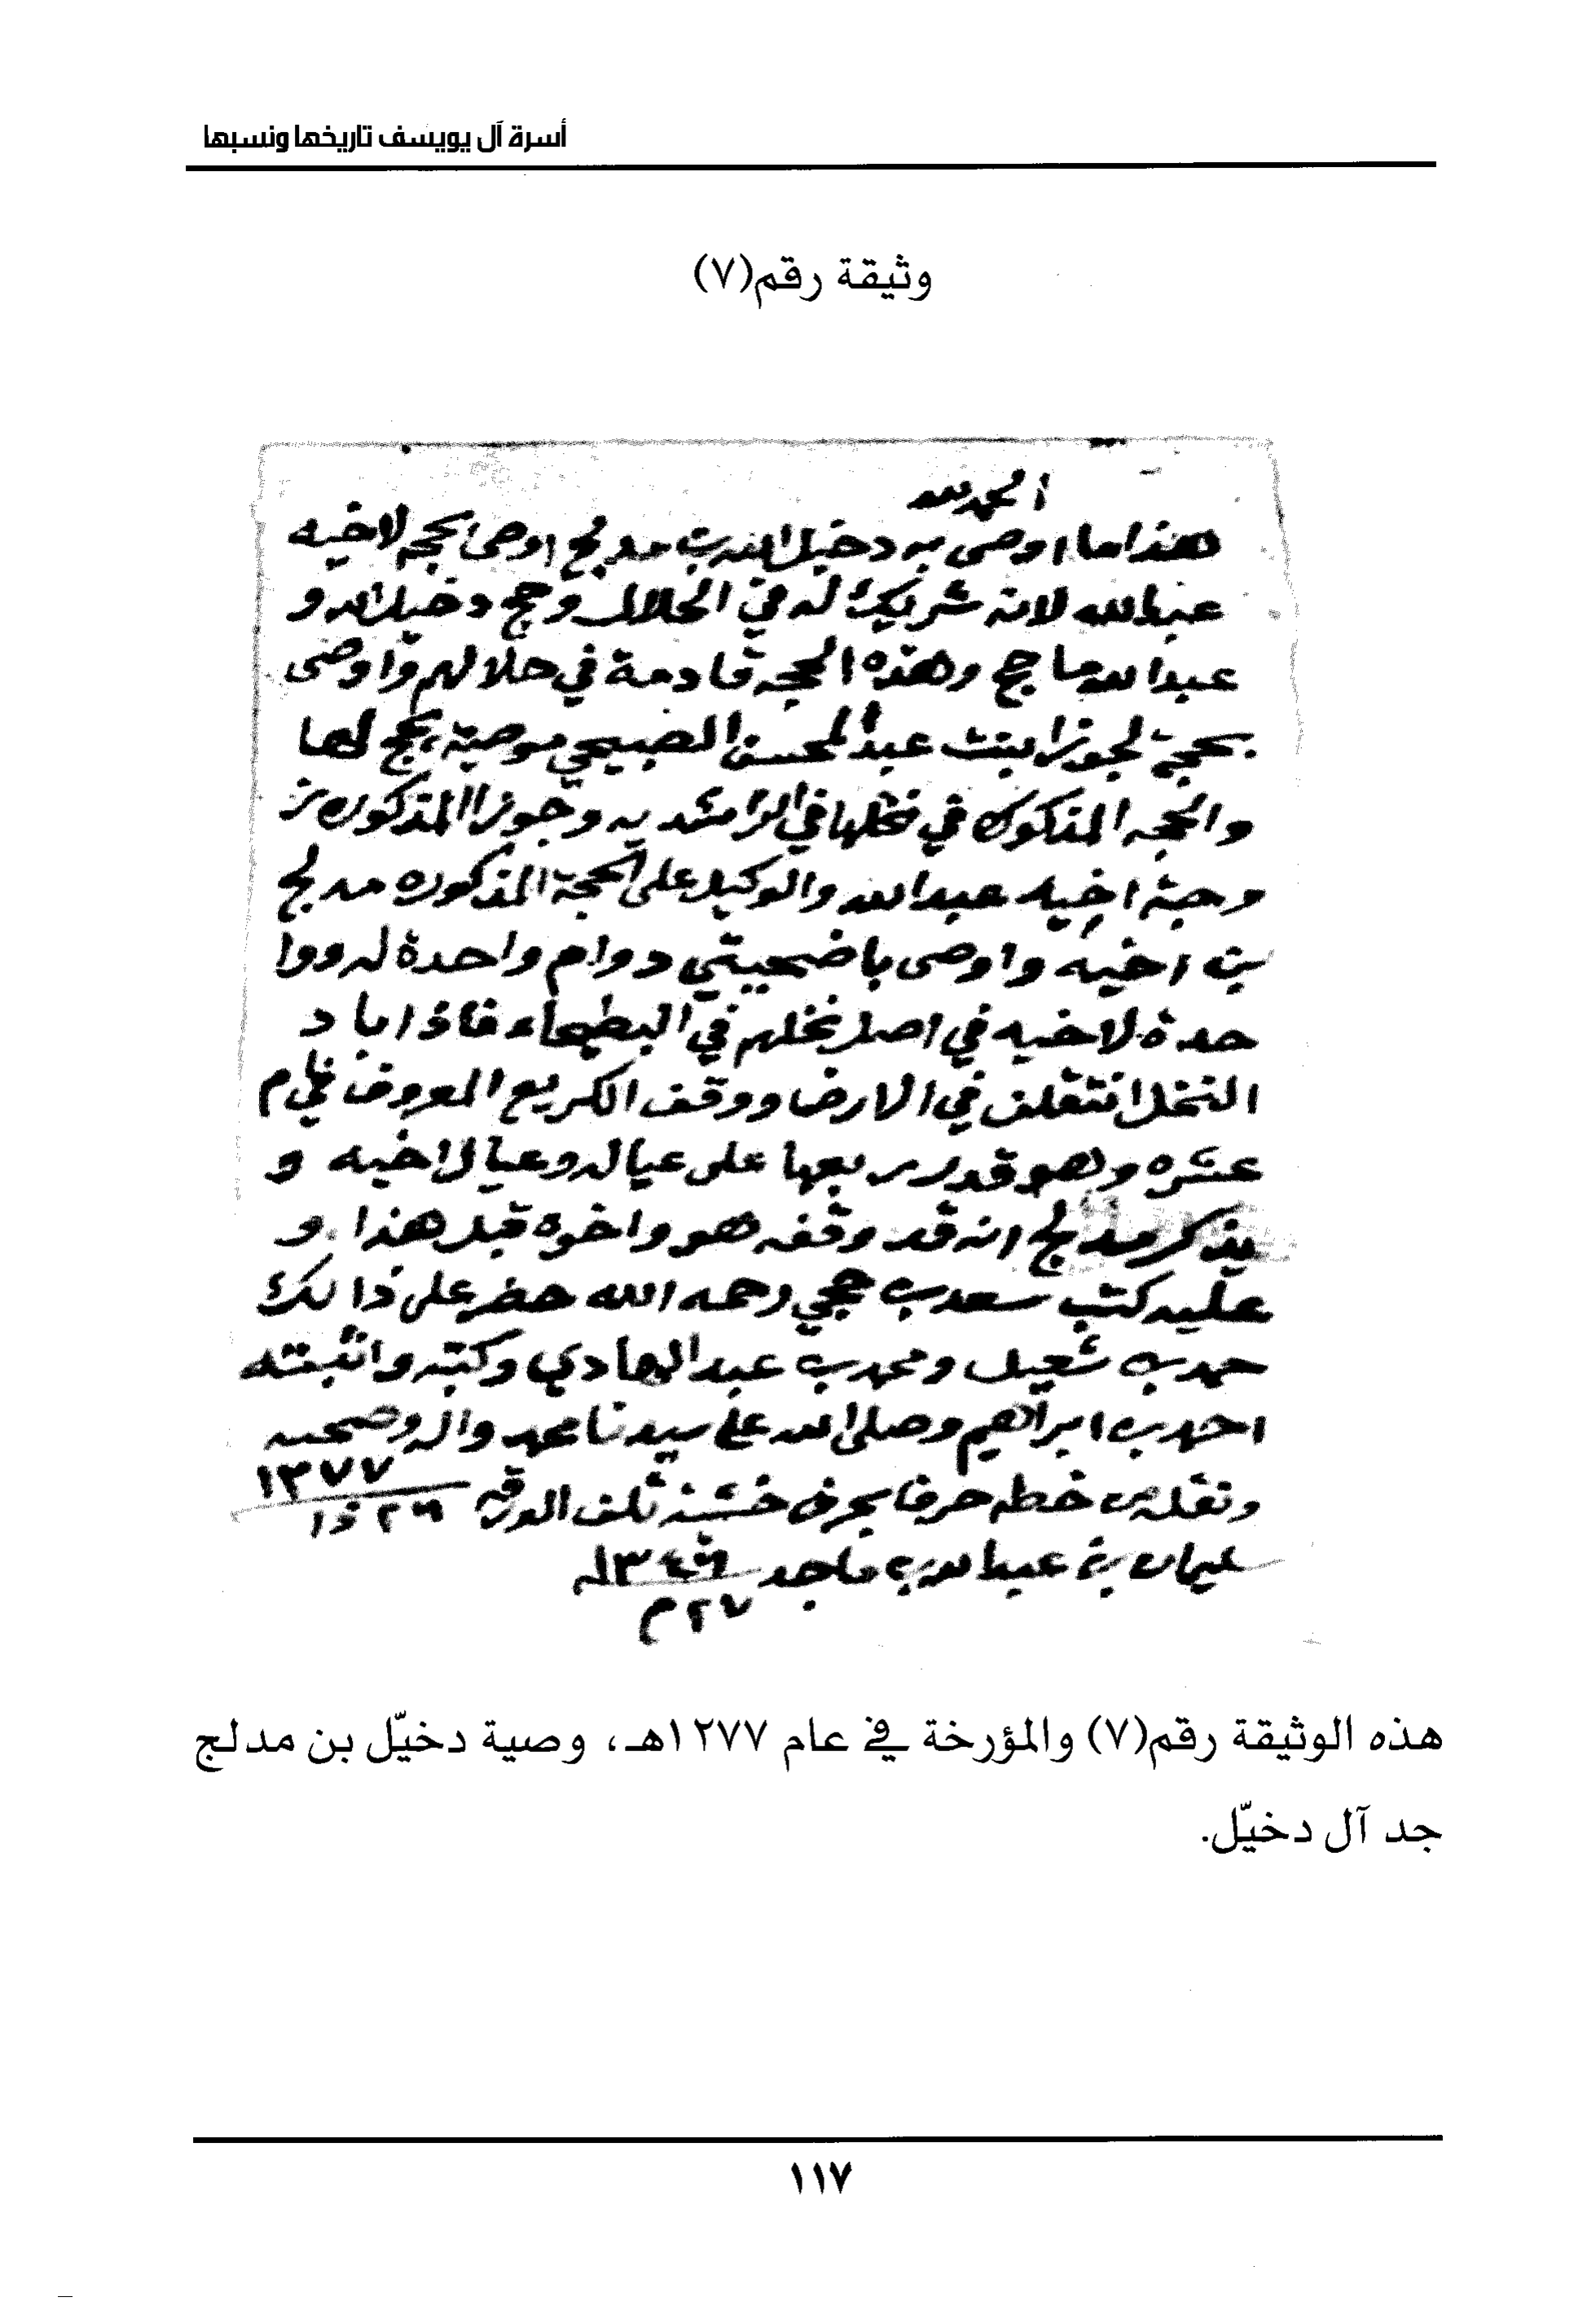 أسرة آل يويسف تاريخها ونسبها
وثيقة رقم(٧)
الحمد لله
هذا ما اوصى به دخيل الله بن مدلج اوصى بحجه لاخيه
عبدالله لانه شريك له في الحلال وحج دخيل الله و
عبدالله ما حج وهذه الحجه قادمة في حلالهم واوصى
بحجة لجوزا بنت عبد المحسن الصبيحي موصيته بحج لها
والحجه المذكوره في نخلها في الراشديه وجوزا المذكوره ز
وجة اخيه عبدالله والوكيل على الحجة المذكوره مدلج
بن اخيه واوصى باضحيتي دوام واحدة له ووا
حدة لاخيه في اصل نخلهم في البطيحاء فاذا باد
النخل انتقلن في الارض ووقف الكريع المعروف في ام
عشره وهو قدر ربعها على عياله وعيال اخيه و
يذكر مدلج انه قد وقفه هو واخوه قبل هذا و
عليه كتب سعد بن حجي رحمه الله حضر على ذالك
حمد بن شعيل ومحمد بن عبدالهادي وكتبه واثبته
احمد بن ابراهيم وصلى الله على سيدنا محمد واله وصحبه
ونقله من خطه حرفا بحرف خشية تلف الورقه ١٢٧٧
٢٦ ذا
سليمان بن عبدالله بن ماجد ١٣٤٦هـ
٢٧ م
هذه الوثيقة رقم(٧) والمؤرخة في عام ١٢٧٧هـ، وصية دخيّل بن مدلج
جد آل دخيّل.
١١٧